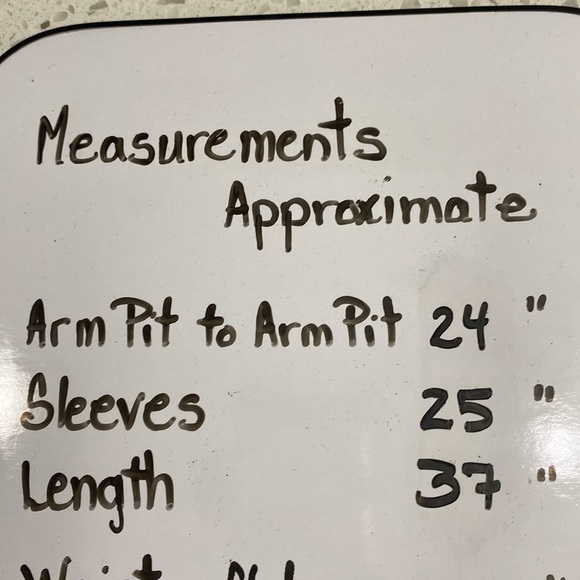 Measurements
Approximate
Arm Pit to Arm Pit 24 "
Sleeves 25 "
Length 37 "